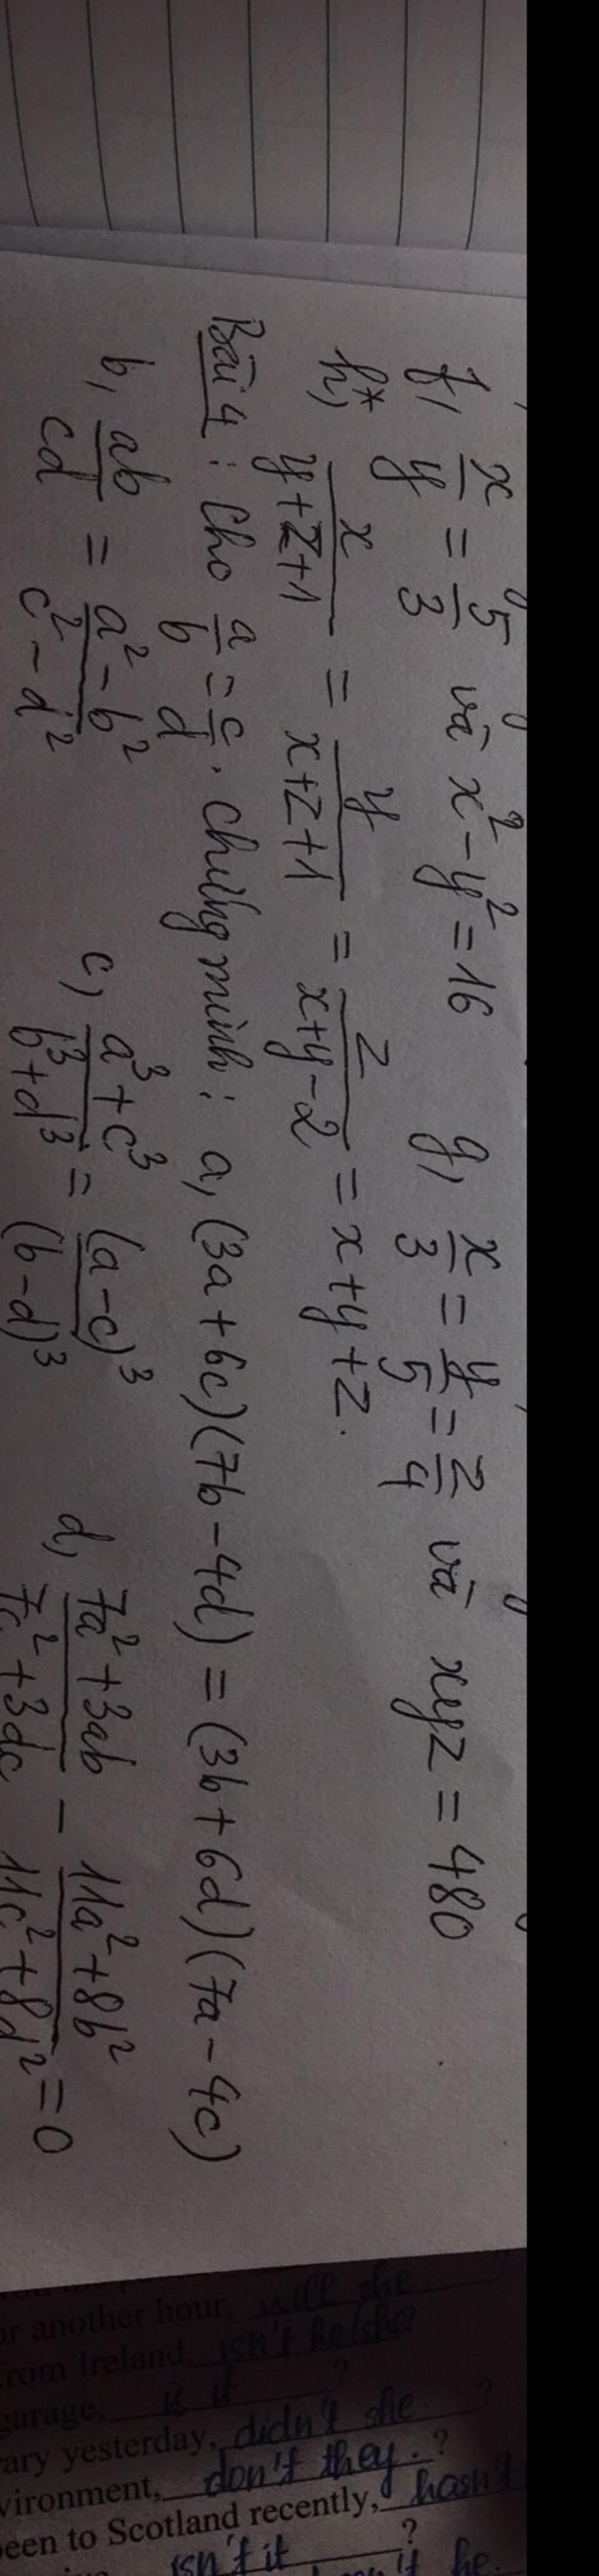 f, x/y = 5/3 và x² - y² = 16 g, x/3 = y/5 = z/4 và xyz = 480
h,* x/(y+z+1) = y/(x+z+1) = z/(x+y-2) = x+y+z.
Bài 4: Cho a/b = c/d. Chứng minh: a, (3a+6c)(7b-4d) = (3b+6d)(7a-4c)
b, ab/cd = (a²-b²)/(c²-d²) c, (a³+c³)/(b³+d³) = (a-c)³/(b-d)³ d, (7a²+3ab)/(7c²+3dc) - (11a²+8b²)/(11c²+8d²) = 0
or another hour, will she ?
from Ireland, isn't he/she
garage, is it ?
ary yesterday, didn't she ?
vironment, don't they. ?
een to Scotland recently, hasn't
isn't it ?
he.